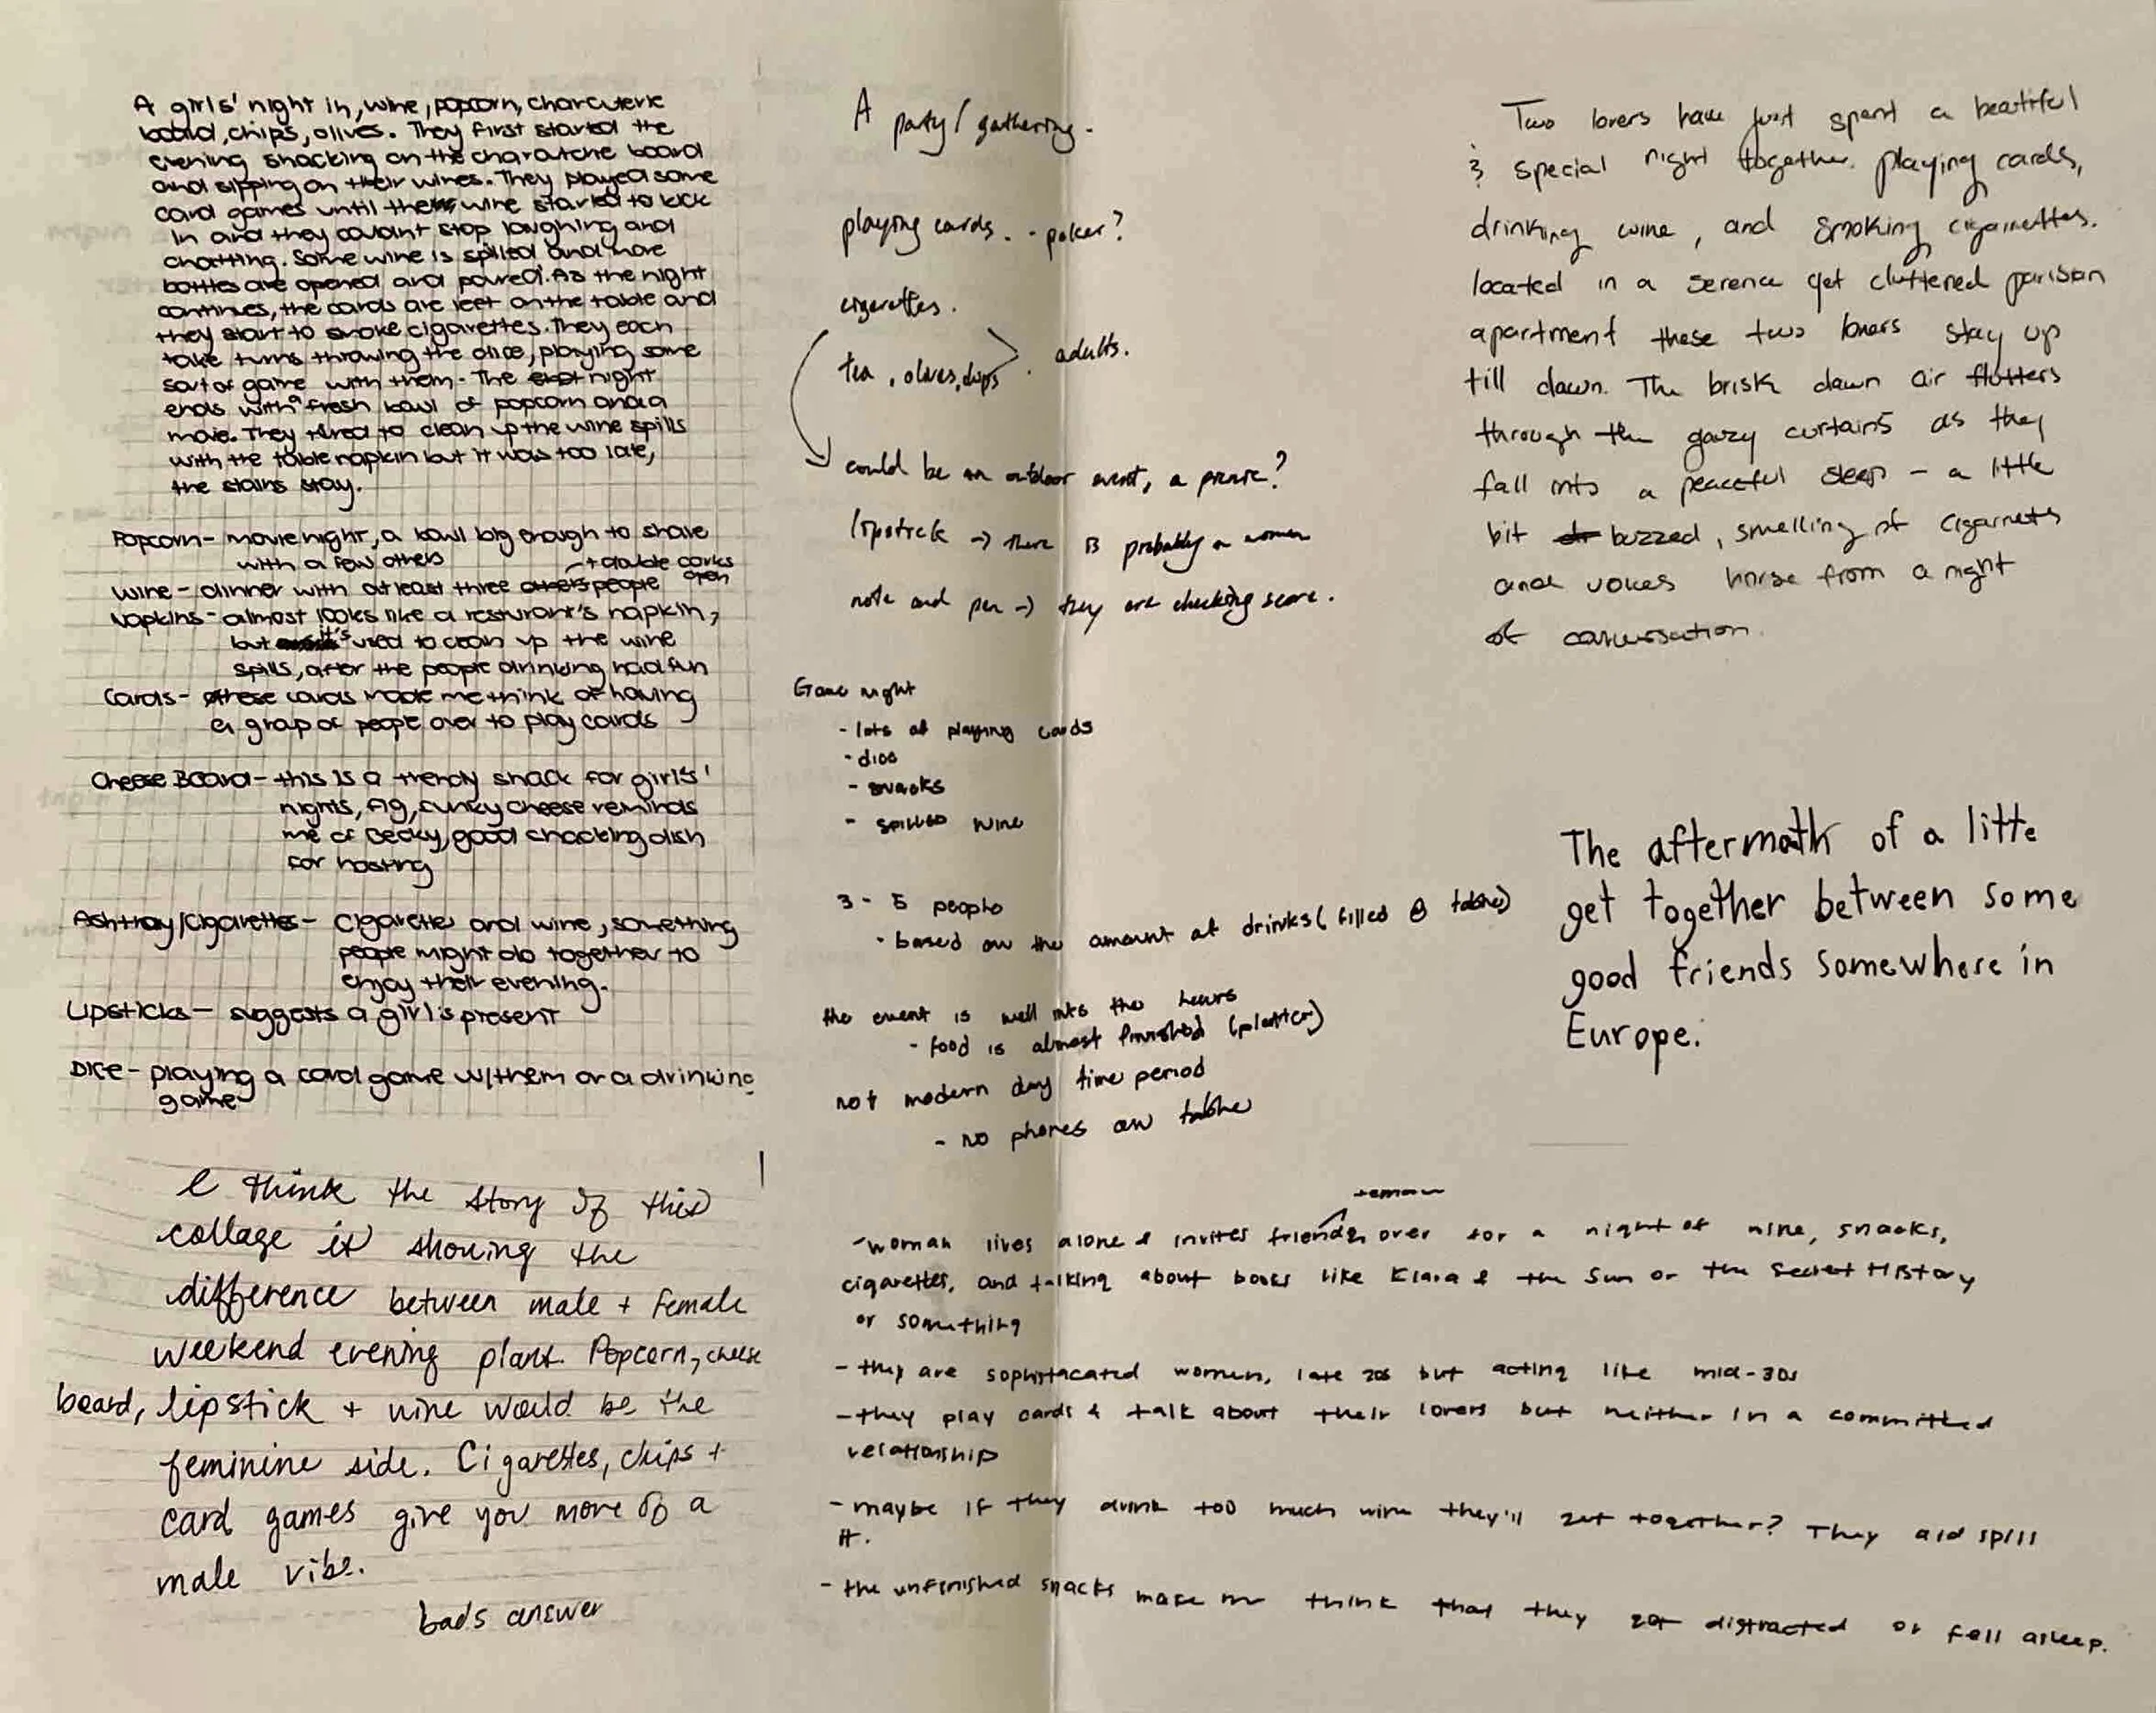 A girls' night in, wine, popcorn, charcuterie
board, chips, olives. They first started the
evening snacking on the charatchie board
and sipping on their wines. They played some
card games until the wine started to kick
in and they couldnt stop laughing and
chatting. Some wine is spilled and more
bottles are opened and poured. As the night
continues, the cards are left on the table and
they start to smoke cigarettes. They each
take turns throwing the dice, playing some
sort of game with them. The night
ends with a fresh bowl of popcorn and a
movie. They tired to clean up the wine spills
with the table napkin but it was too late,
the stains stay.
Popcorn - movie night, a bowl big enough to share
with a few others
Wine - dinner with at least three others people + double corks open
Napkins - almost looks like a resturant's napkin,
but it's used to clean up the wine
spills, after the people drinking had fun
Cards - these cards made me think of having
a group of people over to play cards
Cheese Board - this is a trendy snack for girls'
nights, fig, funky cheese reminds
me of Becky, good snacking dish
for hosting
Ashtray/Cigarettes - Cigarettes and wine, something
people might do together to
enjoy their evening.
Lipsticks - suggests a girl is present
Dice - playing a card game w/them or a drinking
game
I think the story of this
collage is showing the
difference between male + female
weekend evening plans. Popcorn, cheese
board, lipstick + wine would be the
feminine side. Cigarettes, chips +
card games give you more of a
male vibe.
bad's answer
A party / gathering.
playing cards. - poker?
cigarettes.
tea, olives, chips . adults.
could be an outdoor event, a picnic?
lipstick -> there is probably a women
note and pen -> they are checking score.
Game night
- lots of playing cards
- dice
- snacks
- spilled wine
3 - 5 people
- based on the amount of drinks (filled @ table)
the event is well into the hours
- food is almost finished (platter)
not modern day time period
- no phones on table
Two lovers have just spent a beatiful
& special night together. playing cards,
drinking wine, and smoking cigarnettes.
located in a serence yet cluttered parisian
apartment these two lovers stay up
till dawn. The brisk dawn air flutters
through the gauzy curtains as they
fall into a peaceful sleep - a little
bit buzzed, smelling of cigarnets
and voices horse from a night
of conversation.
The aftermath of a litte
get together between some
good friends somewhere in
Europe.
- woman lives alone & invites friend over for a night of wine, snacks,
cigarettes, and talking about books like Klara & the Sun or the Secret History
or something
- they are sophistacated women, late 20s but acting like mid-30s
- they play cards & talk about their lovers but neither in a committed
relationship
- maybe if they drink too much wine they'll get together? They did spill
it.
- the unfinished snacks make me think that they got distracted or fell asleep.